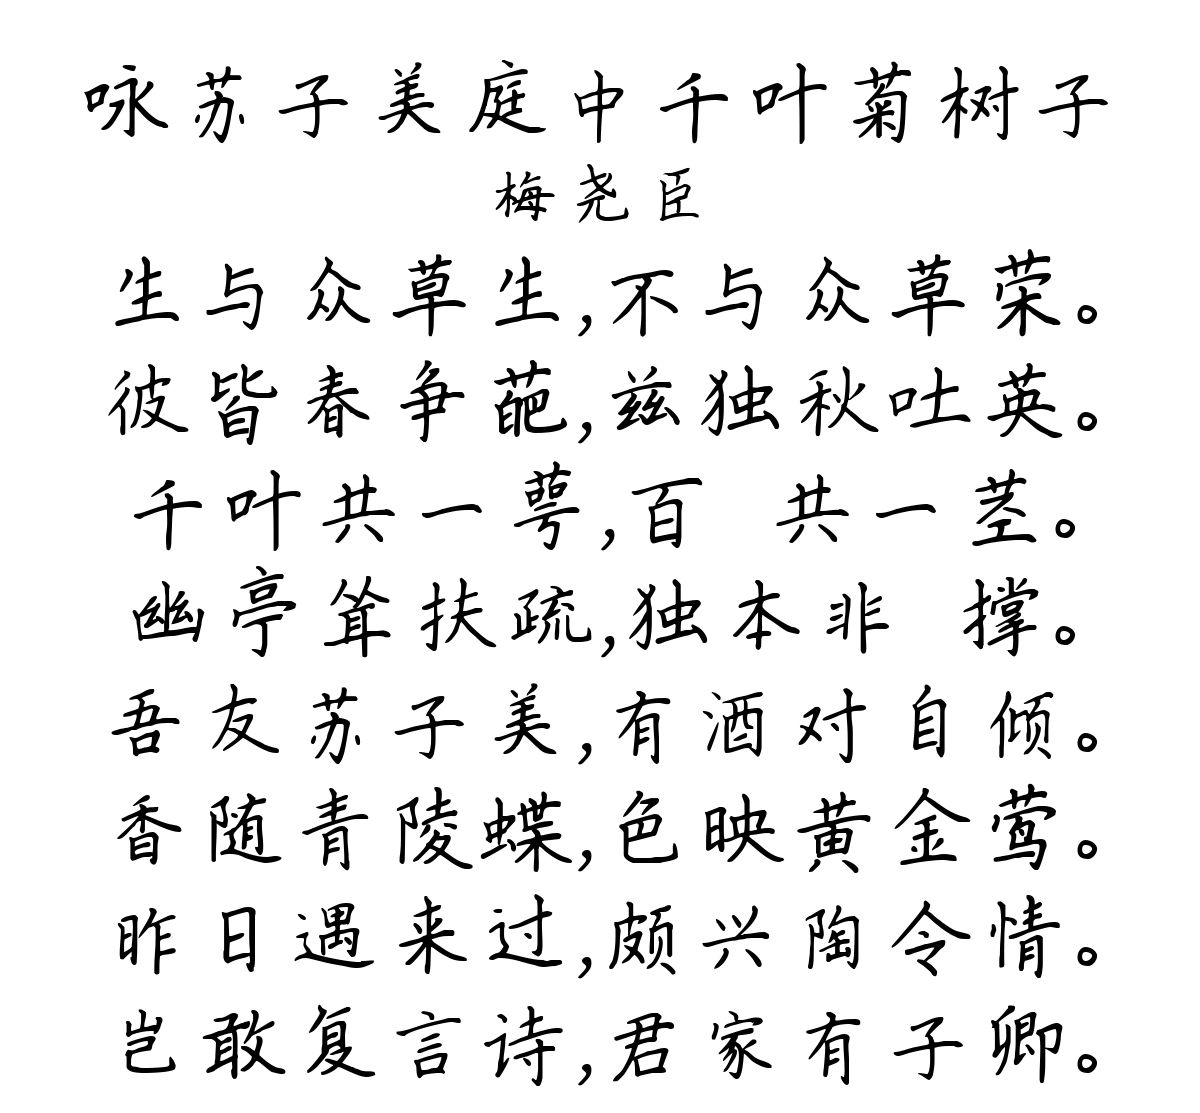 咏苏子美庭中千叶菊树子
梅尧臣
生与众草生,不与众草荣。
彼皆春争葩,兹独秋吐英。
千叶共一萼,百 共一茎。
幽亭耸扶疏,独本非 撑。
吾友苏子美,有酒对自倾。
香随青陵蝶,色映黄金莺。
昨日遇来过,颇兴陶令情。
岂敢复言诗,君家有子卿。